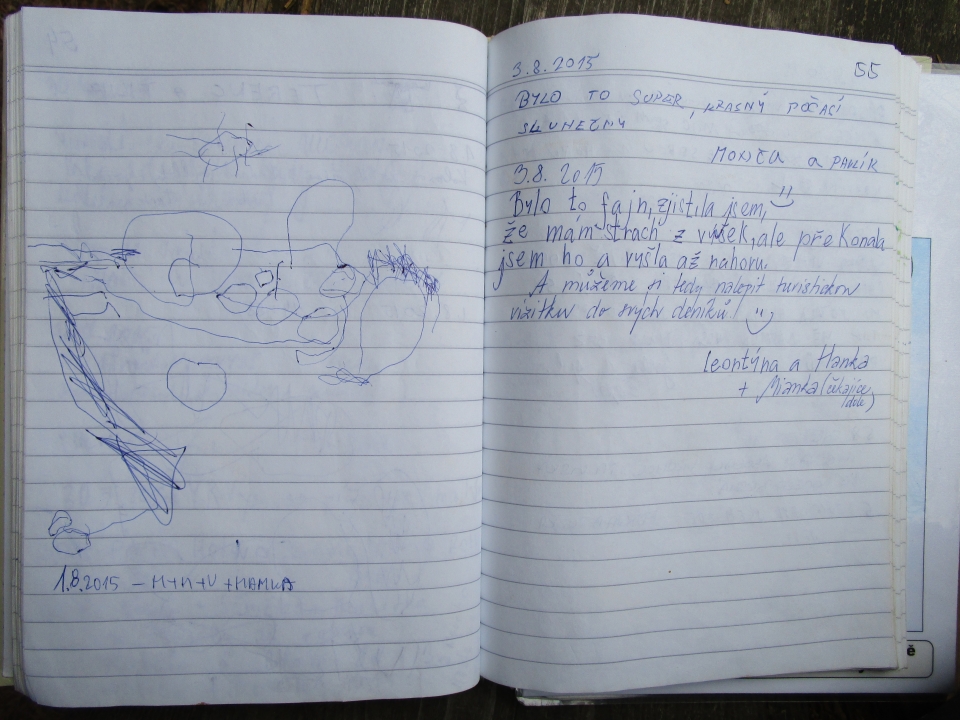 1.8.2015 – M+N+V + MAMKA
3.8.2015
55
BYLO TO SUPER, KRASNÝ POČASÍ
SLUNEČNÝ
MONČA a PAVLÍK
3.8.2015
Bylo to fajn, zjistila jsem,
že mám strach z výšek, ale překonala
jsem ho a vyšla až nahoru.
A můžeme si tedy nalepit turistickou
vizitku do svých deníků!
Leontýna a Hanka
+ Mianka (čekající
dole)
ě